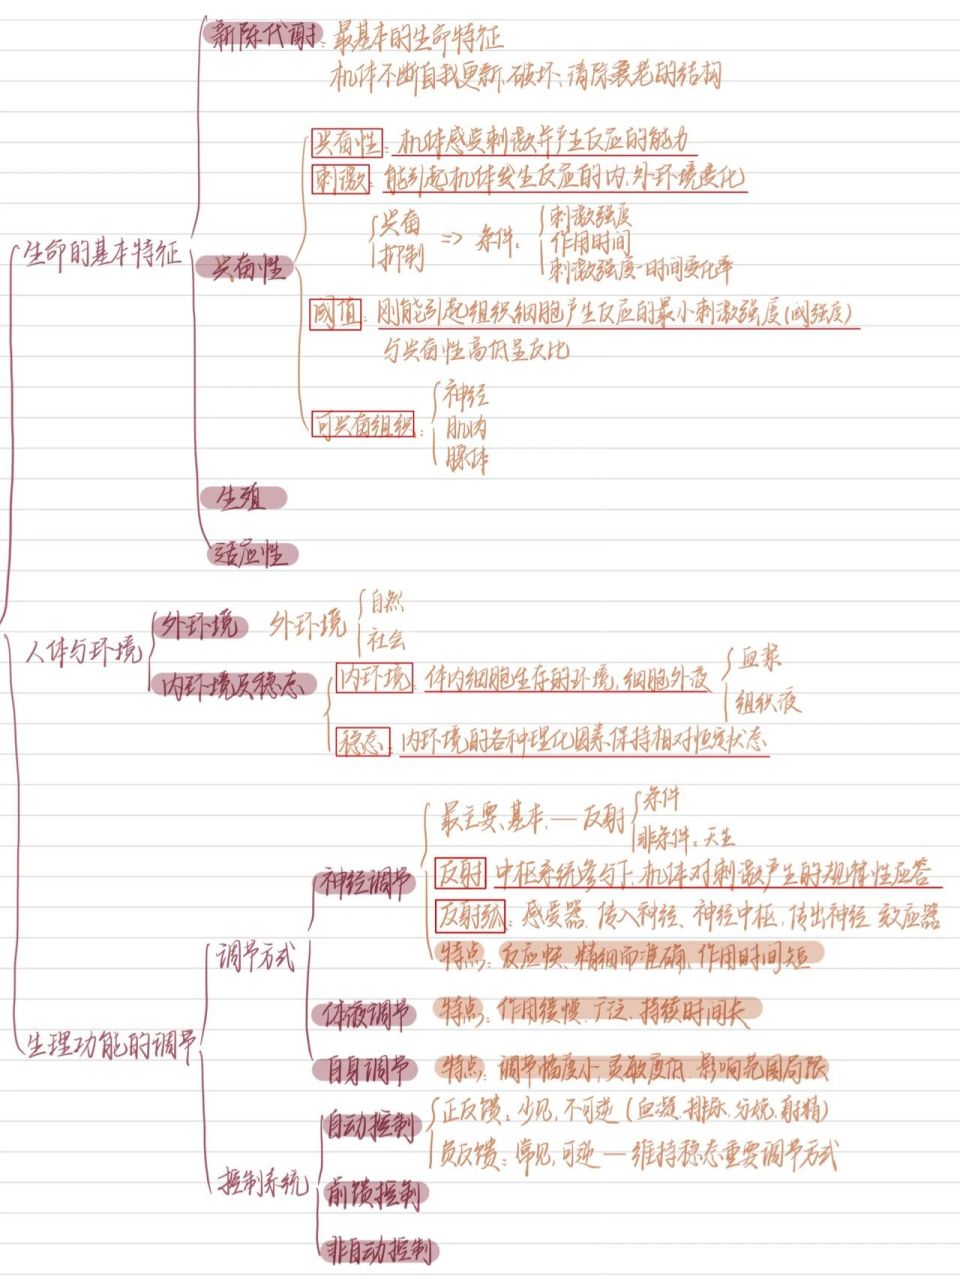 新陈代谢：最基本的生命特征
机体不断自我更新，破坏、清除衰老的结构
兴奋性：机体感受刺激并产生反应的能力
刺激：能引起机体发生反应的内、外环境变化
兴奋
抑制
=> 条件：
刺激强度
作用时间
刺激强度-时间变化率
生命的基本特征
兴奋性
阈值：刚能引起组织细胞产生反应的最小刺激强度(阈强度)
与兴奋性高低呈反比
可兴奋组织：
神经
肌肉
腺体
生殖
适应性
人体与环境
外环境 外环境
自然
社会
内环境及稳态
内环境：体内细胞生存的环境，细胞外液
血浆
组织液
稳态：内环境的各种理化因素保持相对恒定状态
最主要、基本，— 反射
条件
非条件：天生
神经调节
反射：中枢系统参与下，机体对刺激产生的规律性应答
反射弧：感受器、传入神经、神经中枢、传出神经、效应器
特点：反应快、精细而准确、作用时间短
调节方式
体液调节 特点：作用缓慢、广泛、持续时间长
生理功能的调节
自身调节 特点：调节幅度小、灵敏度低、影响范围局限
自动控制
正反馈：少见，不可逆（血凝、排尿、分娩、射精）
负反馈：常见，可逆 — 维持稳态重要调节方式
控制系统
前馈控制
非自动控制